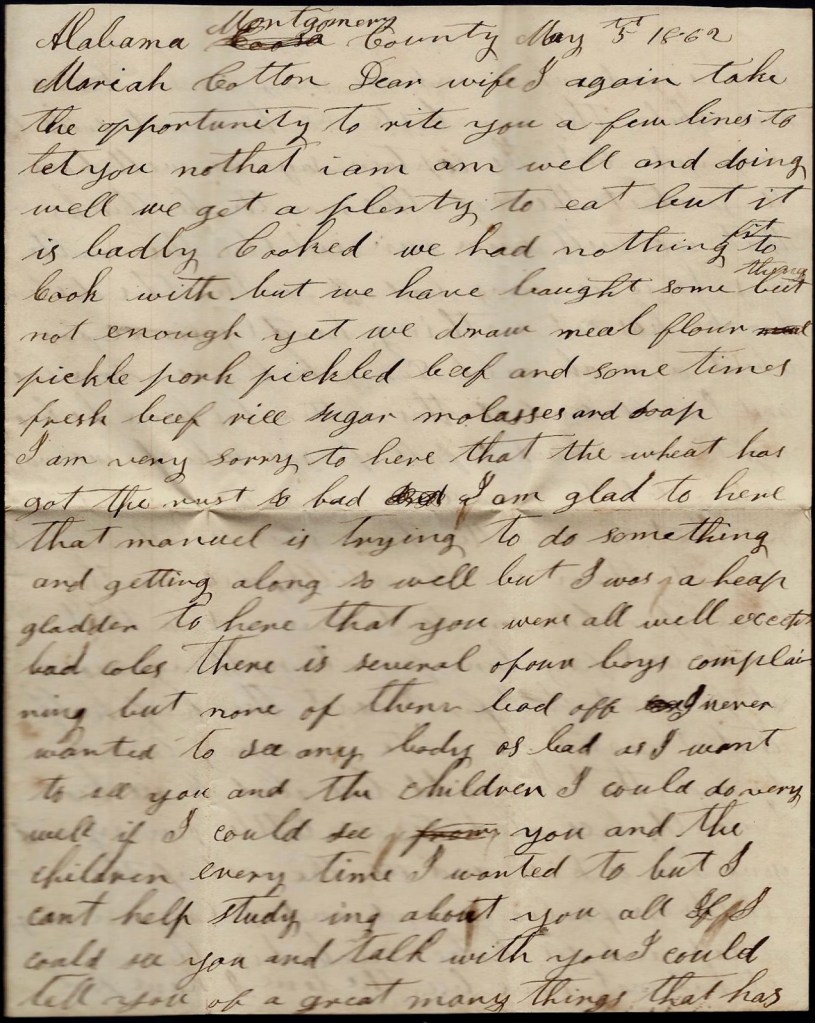 Alabama Montgomery County May 5th 1862
Mariah Cotton Dear wife I again take
the opportunity to rite you a few lines to
let you nothat i am am well and doing
well we get a plenty to eat but it
is badly Cooked we had nothing fit to
Cook with but we have baught some things but
not enough yet we draw meal flour
pickle pork pickled beef and some times
fresh beef rice sugar molasses and soap
I am very sorry to here that the wheat has
got the rust so bad I am glad to here
that manuel is trying to do something
and getting along so well but I was a heap
gladder to here that you were all well except
bad coles there is several ofour boys complai
ning but none of them bad off I never
wanted to see any body as bad as I want
to see you and the children I could do very
well if I could see from you and the
children every time I wanted to but I
cant help study ing about you all If I
could see you and talk with you I could
tell you of a great many things that has